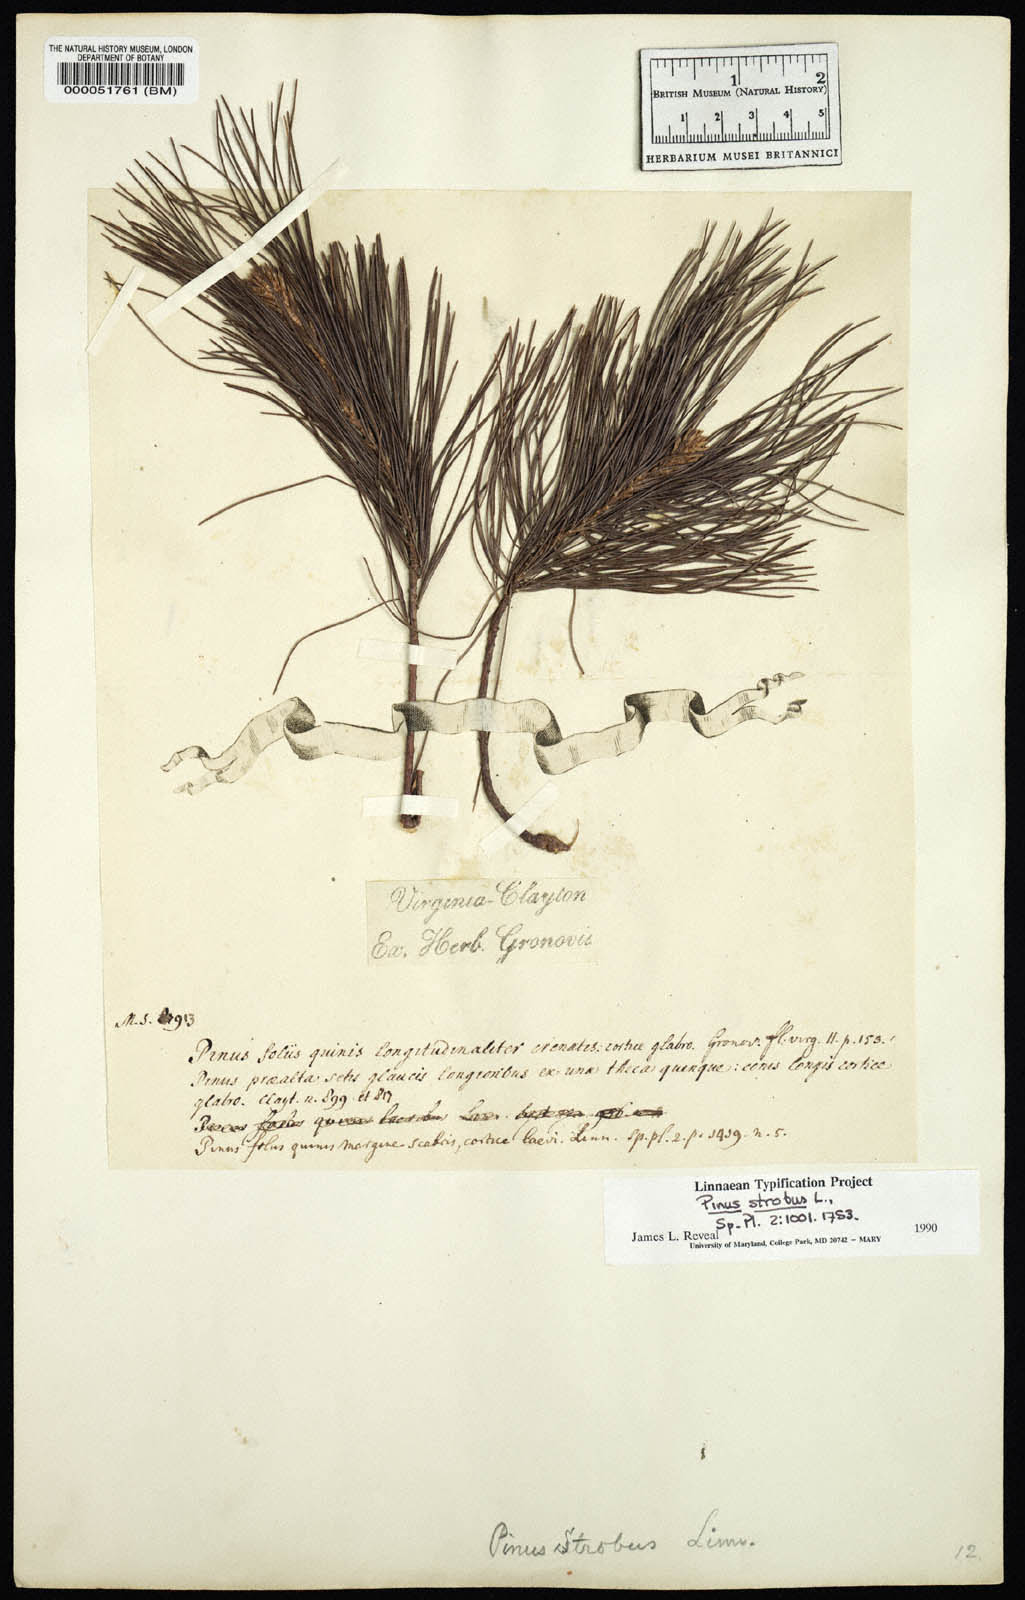 THE NATURAL HISTORY MUSEUM, LONDON
DEPARTMENT OF BOTANY
000051761 (BM)
1 2
BRITISH MUSEUM (NATURAL HISTORY)
1 2 3 4 5
HERBARIUM MUSEI BRITANNICI
Virginia-Clayton
Ex. Herb. Gronovii
M.S. 913
Pinus foliis quinis longitudinaliter crenatis: cortice glabro. Gronov. fl. virg. II. p. 153.
Pinus præalta setis glaucis longioribus ex una theca quinque: conis longis cortice
glabro. Clayt. n. 899 et 817
Pinus foliis quinis
Pinus foliis quinis margine scabris, cortice laevi. Linn. Sp. pl. 2. p. 1419. n. 5.
Linnaean Typification Project
Pinus strobus L.,
Sp. Pl. 2:1001. 1753.
James L. Reveal 1990
University of Maryland, College Park, MD 20742 – MARY
Pinus Strobus Linn.
12